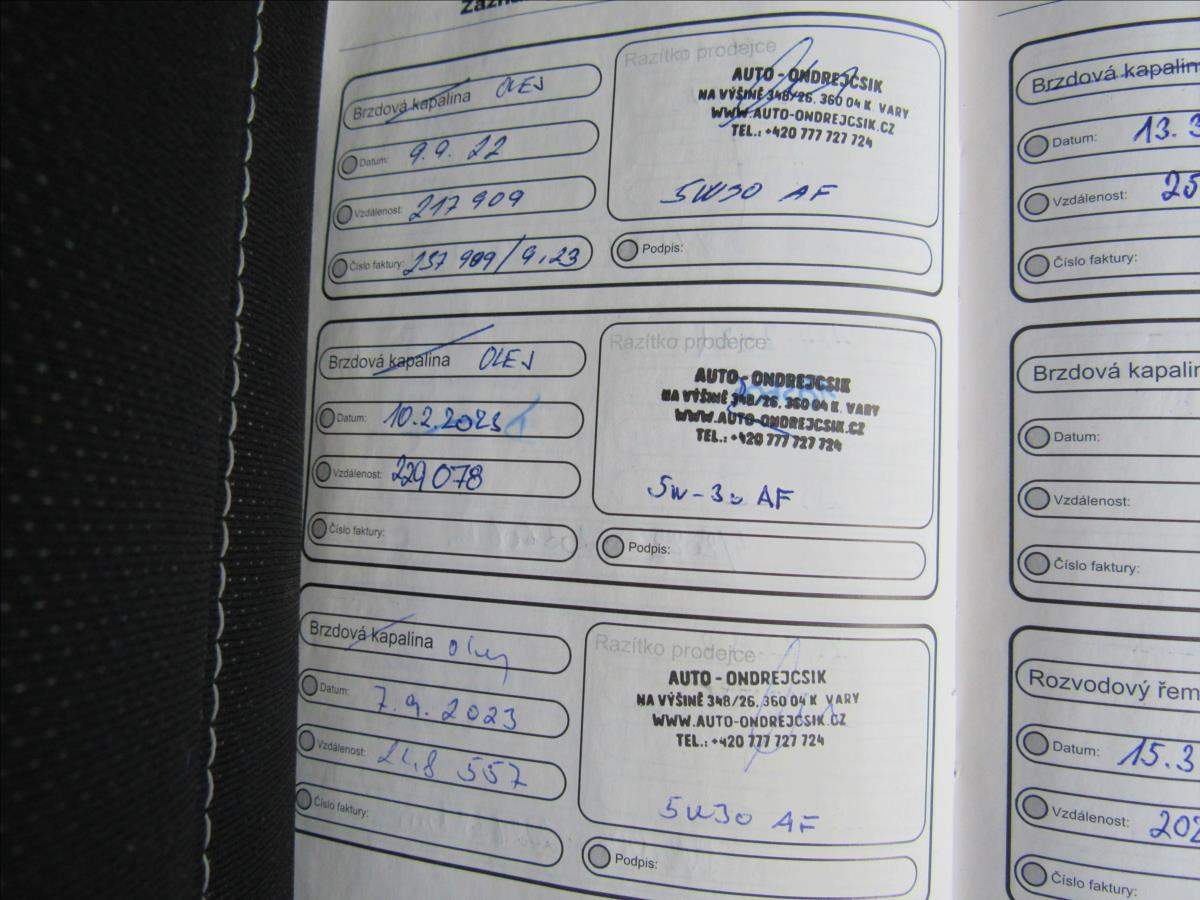 Brzdová kapalina OLEJ
Datum: 9.9. 22
Vzdálenost: 217 909
Číslo faktury: 237 909/9.23
Razítko prodejce
AUTO - ONDREJCSIK
NA VÝŠINĚ 348/26. 360 04 K. VARY
WWW.AUTO-ONDREJCSIK.CZ
TEL.: +420 777 727 724
5W30 AF
Podpis:
Brzdová kapalina OLEJ
Datum: 10.2.2023
Vzdálenost: 229 078
Číslo faktury:
Razítko prodejce
AUTO - ONDREJCSIK
NA VÝŠINĚ 348/26. 360 04 K. VARY
WWW.AUTO-ONDREJCSIK.CZ
TEL.: +420 777 727 724
5W-30 AF
Podpis:
Brzdová kapalina olej
Datum: 7.9.2023
Vzdálenost: 248 557
Číslo faktury:
Razítko prodejce
AUTO - ONDREJCSIK
NA VÝŠINĚ 348/26. 360 04 K. VARY
WWW.AUTO-ONDREJCSIK.CZ
TEL.: +420 777 727 724
5W30 AF
Podpis:
Brzdová kapalin
Datum: 13.3
Vzdálenost: 25
Číslo faktury:
Brzdová kapalin
Datum:
Vzdálenost:
Číslo faktury:
Rozvodový řem
Datum: 15.3
Vzdálenost: 202
Číslo faktury: